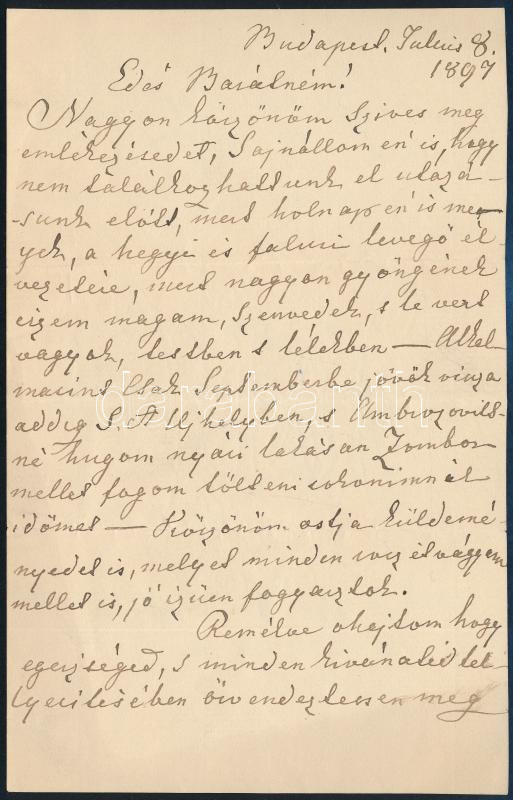 Budapest, Julius 8.
1897
Edes Barátném!
Nagyon köszönöm szives meg
emlékezésedet, Sajnállom én is, hogy
nem találkozhattunk el utazá-
-sunk előtt, mert holnap én is me-
gyek, a hegyi és falusi levegő él-
vezetére, mert nagyon gyöngének
érzem magam, szenvedek, s le vert
vagyok, testben s lélekben — Alkal
masint csak Septemberbe jövök visza
addig S. A. Ujhelyben, s Ambrozovits-
né hugom nyári lakásan Zombor
mellet fogom tölteni rokonimnál
időmet — Köszönöm ostja küldemé-
nyedet is, melyet minden viz étvágyam
mellet is, jó izüen fogyasztok.
Remélve ohajtom hogy
egezséged, s minden kivánatid tel-
lyesitésében örvendeztessen meg
darabanth